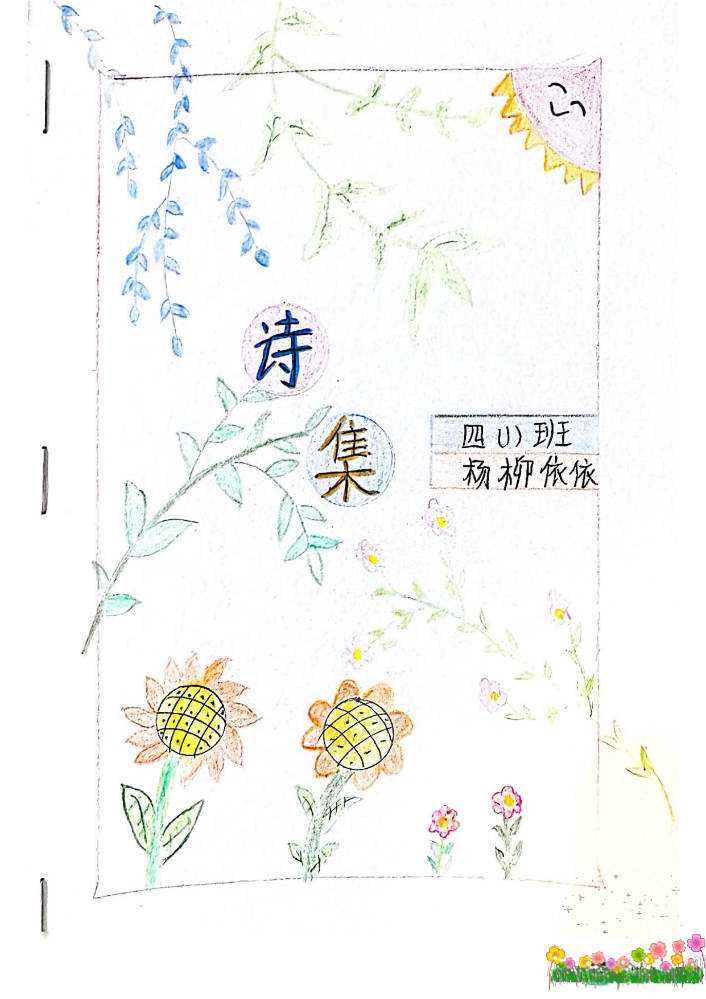 诗
集
四(1)班
杨柳依依